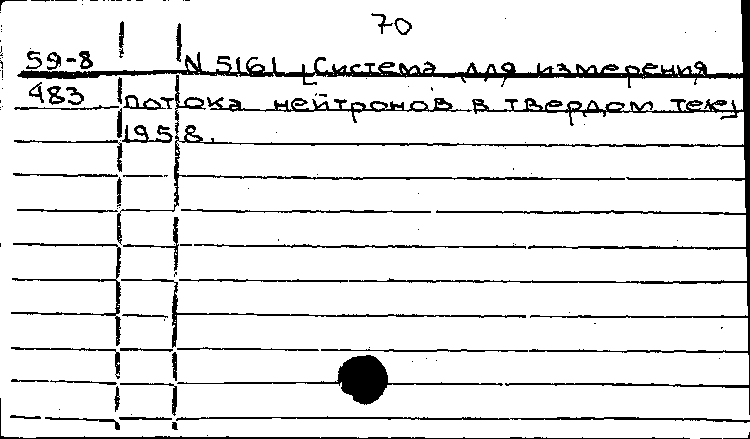 70
59-8 N 5161 [Система для измерения
483 потока нейтронов в твердом теле]
1958.